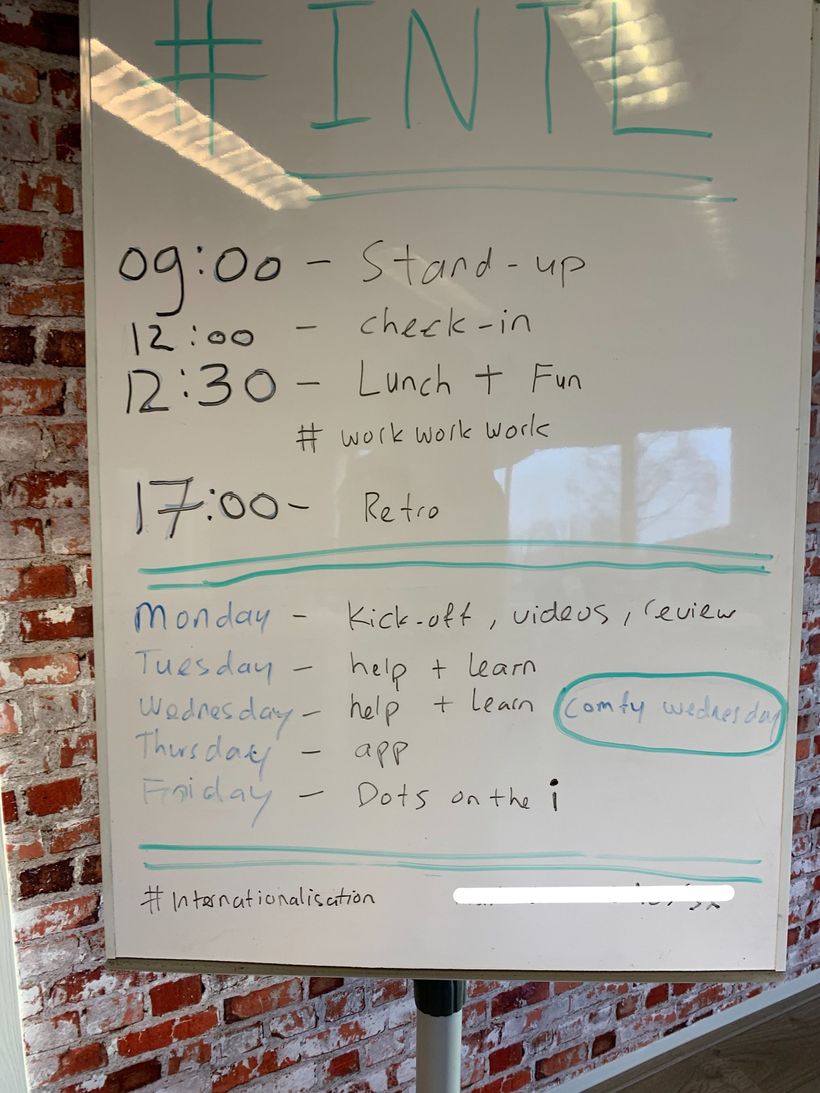 #INTL
09:00 - Stand-up
12:00 - check-in
12:30 - Lunch + Fun
# work work work
17:00 - Retro
Monday - Kick-off, videos, review
Tuesday - help + learn
Wednesday - help + learn comfy wednesday
Thursday - app
Friday - Dots on the i
#Internationalisation